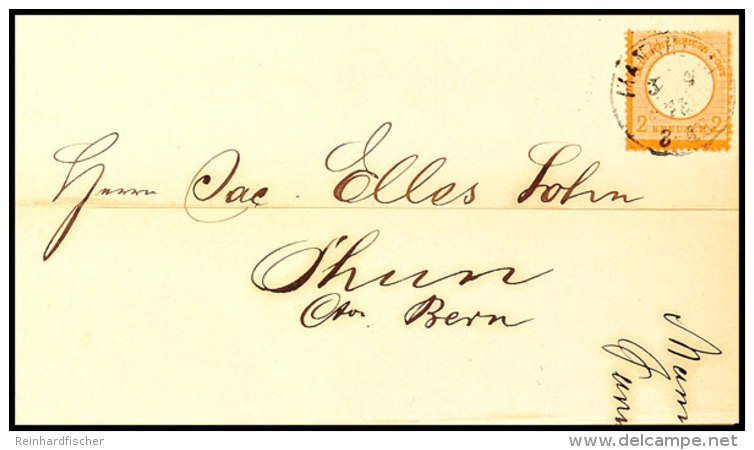 Herrn Jac. Elles Sohn
Thun
Cton Bern
2 KREUZER 2
Reinhardfischer
www.delcampe.net